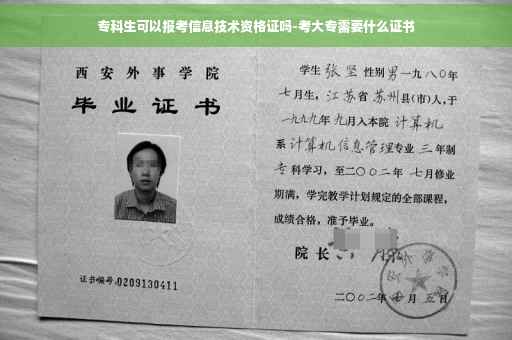 专科生可以报考信息技术资格证吗-考大专需要什么证书
西安外事学院
毕业证书
证书编号:0209130411
学生 张坚 性别 男 一九八〇年
七月生, 江苏省 苏州县(市)人, 于
一九九九年 九月入本院 计算机
系 计算机信息管理专业 三 年制
专科学习, 至二〇〇二年 七月修业
期满, 学完教学计划规定的全部课程,
成绩合格, 准予毕业。
院长
二〇〇二年 月 五日